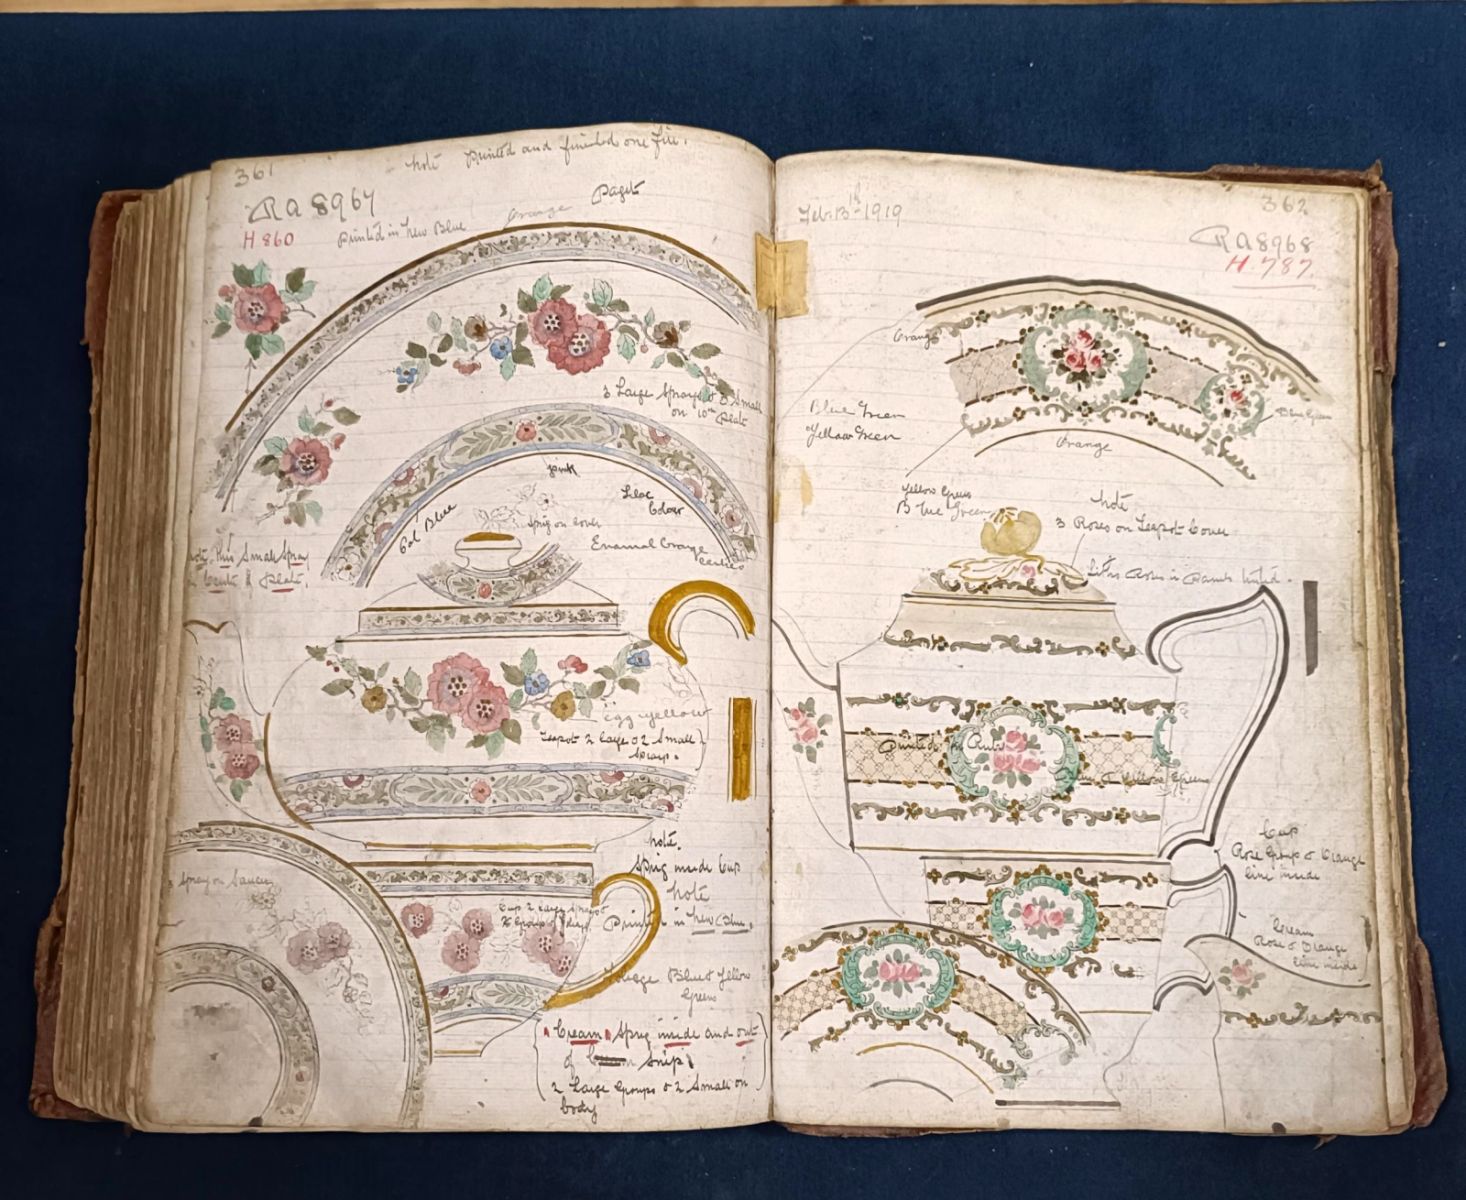 361
Note Printed and finished one fire.
RA 8967
Paget
H 860
Printed in New Blue
Orange
3 Large Sprays & 3 Small
on 10in Plate
pink
Lilac
Colour
Blue
Sprig on cover
Enamel Orange
note this Small Spray
in Centre of Plate.
egg yellow
Teapot 2 Large & 2 Small
Sprays.
note.
Sprig inside Cup
note
Printed in New Blue.
Spray on Saucer
Cup 2 Large Sprays &
Foliage Blue & Yellow
Greens
Cream Sprig inside and out
of snip
2 Large Groups & 2 Small on
body
Feb. 13th 1919
362
RA 8968
H. 787.
Orange
Blue Green
Yellow Green
Blue Green
Orange
Yellow Green
Blue Green
note
3 Roses on Teapot Cover
Printed in
Yellow Greens
Cup
Rose Group & Orange
line inside
Cream
Rose & Orange
line inside